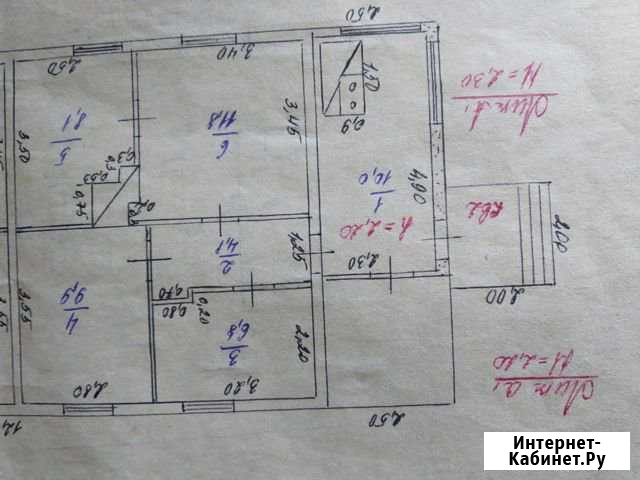 2,50
3,40
2,50
1,50
0,9
3,45
11,8
6
8,1
5
3,50
0,3
0,53
0,75
4,90
10,0
1
h = 2,20
2,30
кв2
2,00
Лит а,
H = 2,30
4,1
2
1,25
0,70
0,80
0,20
6,8
3
2,20
3,20
9,9
4
3,55
2,80
2,50
Лит а,
H = 2,20
Интернет-
Кабинет.Ру